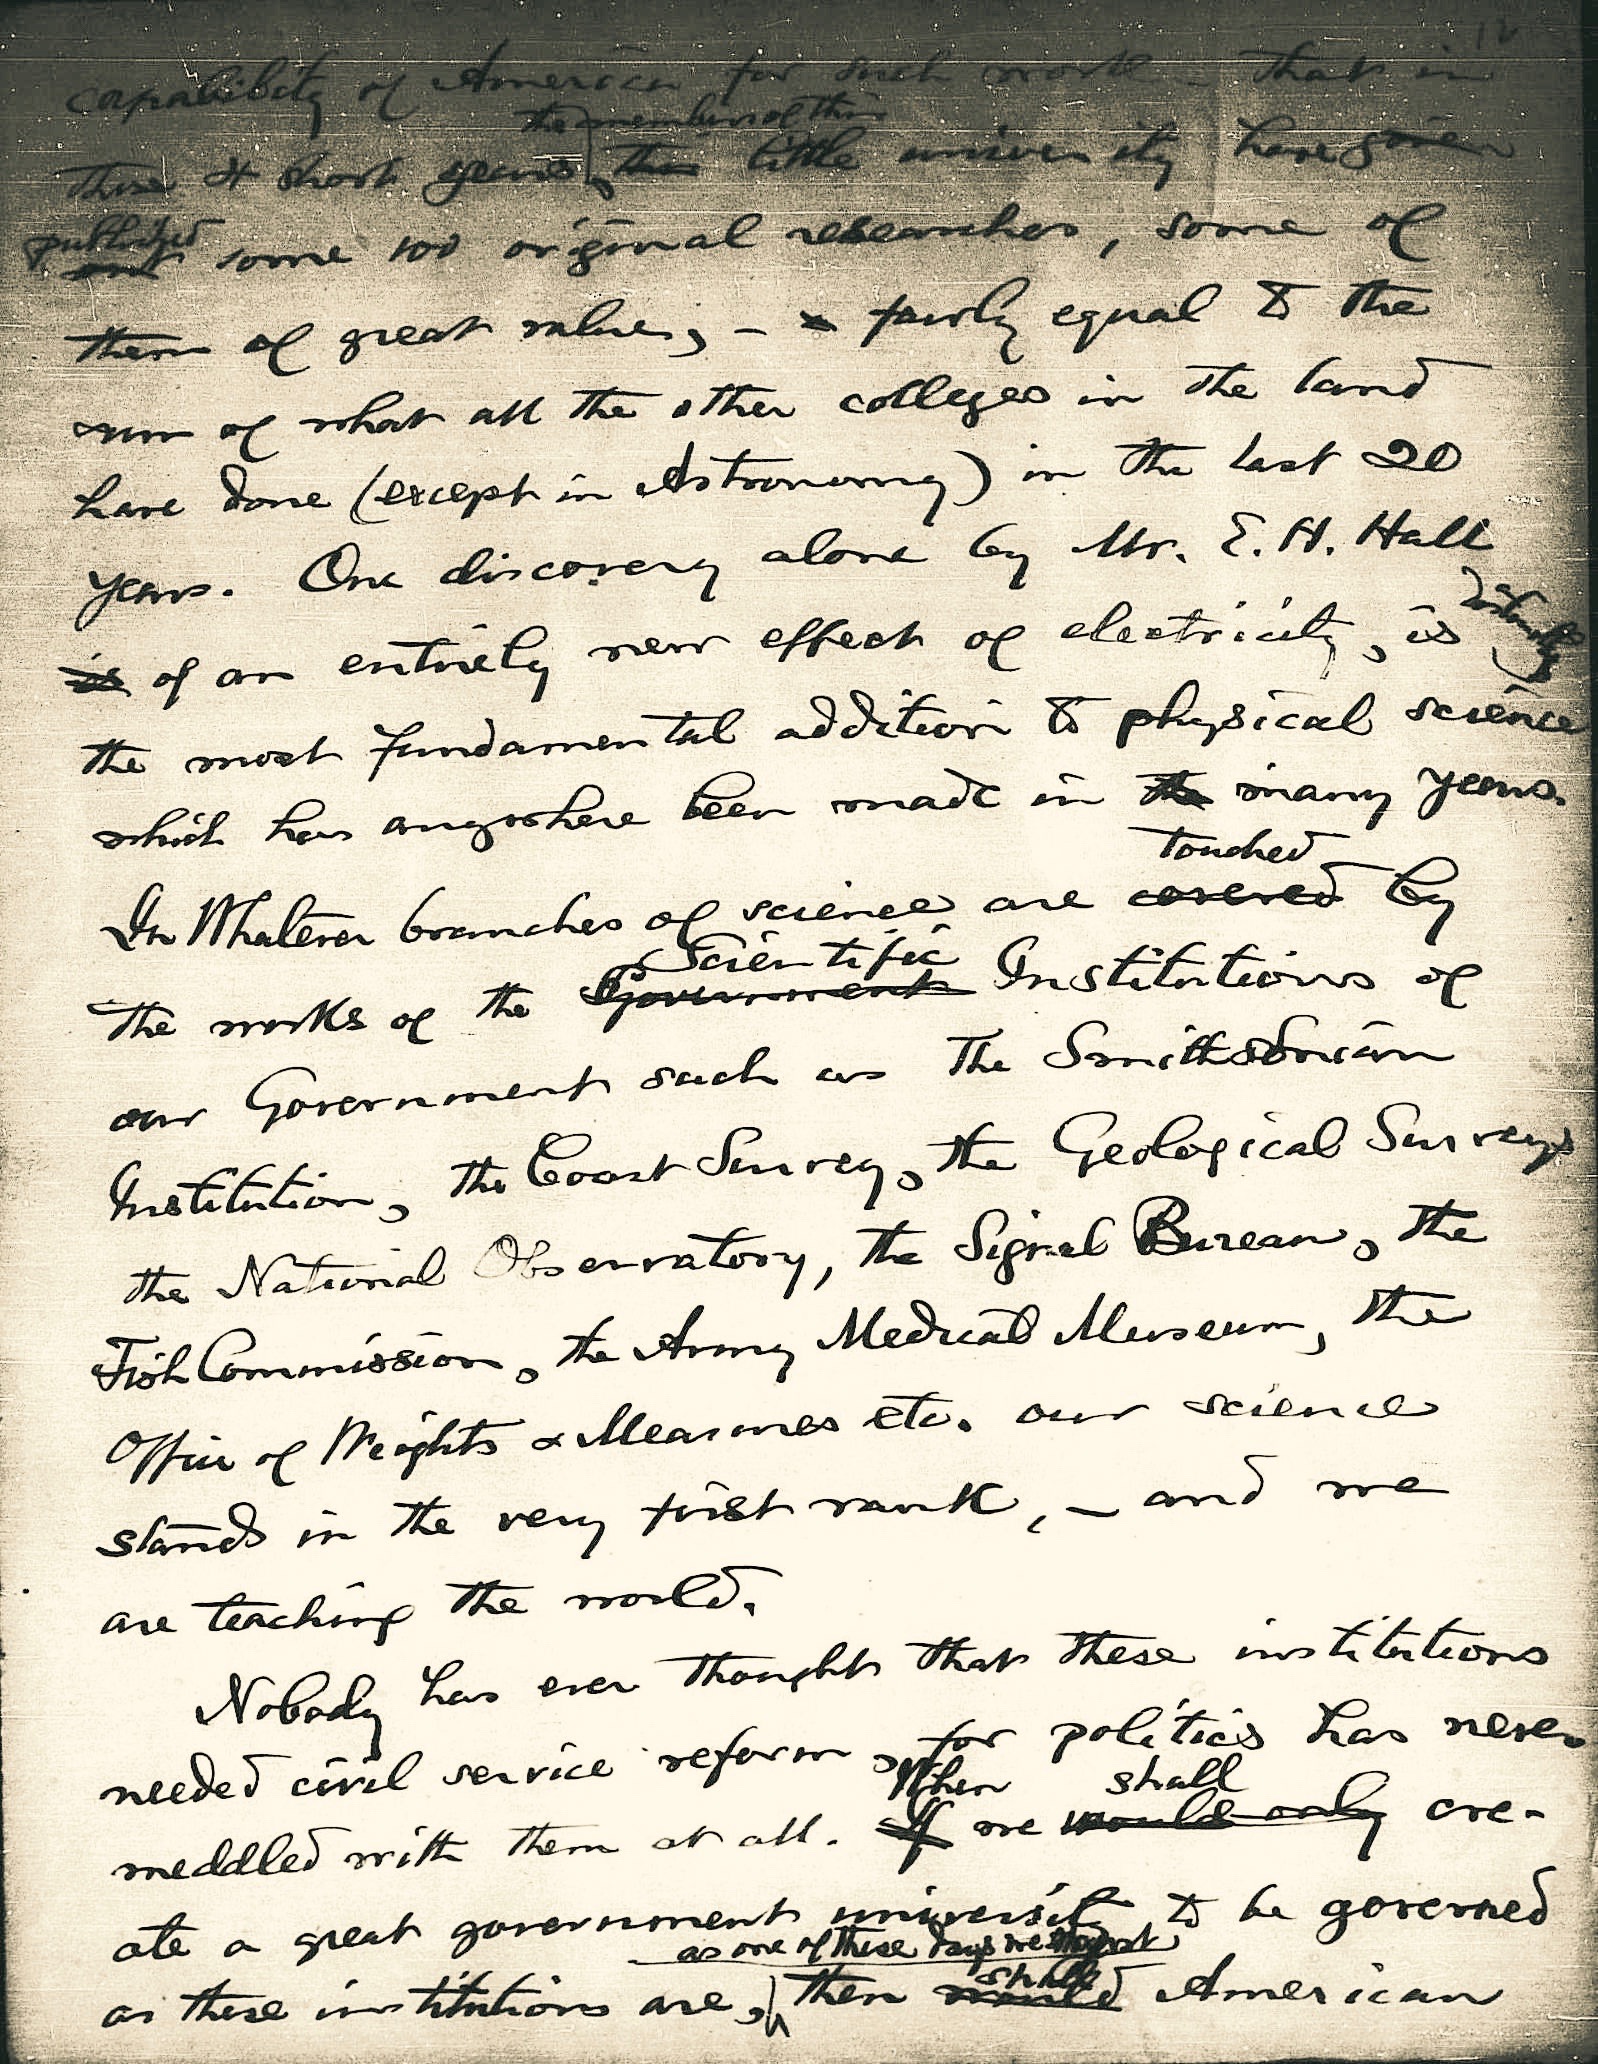 12
capability of America for such work – that in
the members of this
these 4 short years, this little university have given
published
out some 100 original researches, some of
them of great value, – fairly equal to the
sum of what all the other colleges in the land
have done (except in Astronomy) in the last 20
years. One discovery alone by Mr. E. H. Hall
distinctly
is of an entirely new effect of electricity, is
the most fundamental addition to physical science
which has anywhere been made in the many years.
touched
In Whatever branches of science are covered by
Scientific
the works of the Government Institutions of
our Government such as The Smithsonian
Institution, the Coast Survey, the Geological Surveys
the National Observatory, the Signal Bureau, the
Fish Commission, the Army Medical Museum, the
Office of Weights & Measures etc. our science
stands in the very first rank, – and we
are teaching the world.
Nobody has ever thought that these institutions
needed civil service reform, for politics has never
When shall
meddled with them at all. If we would only cre-
ate a great government university to be governed
as one of these days we must
shall
as these institutions are, then would American